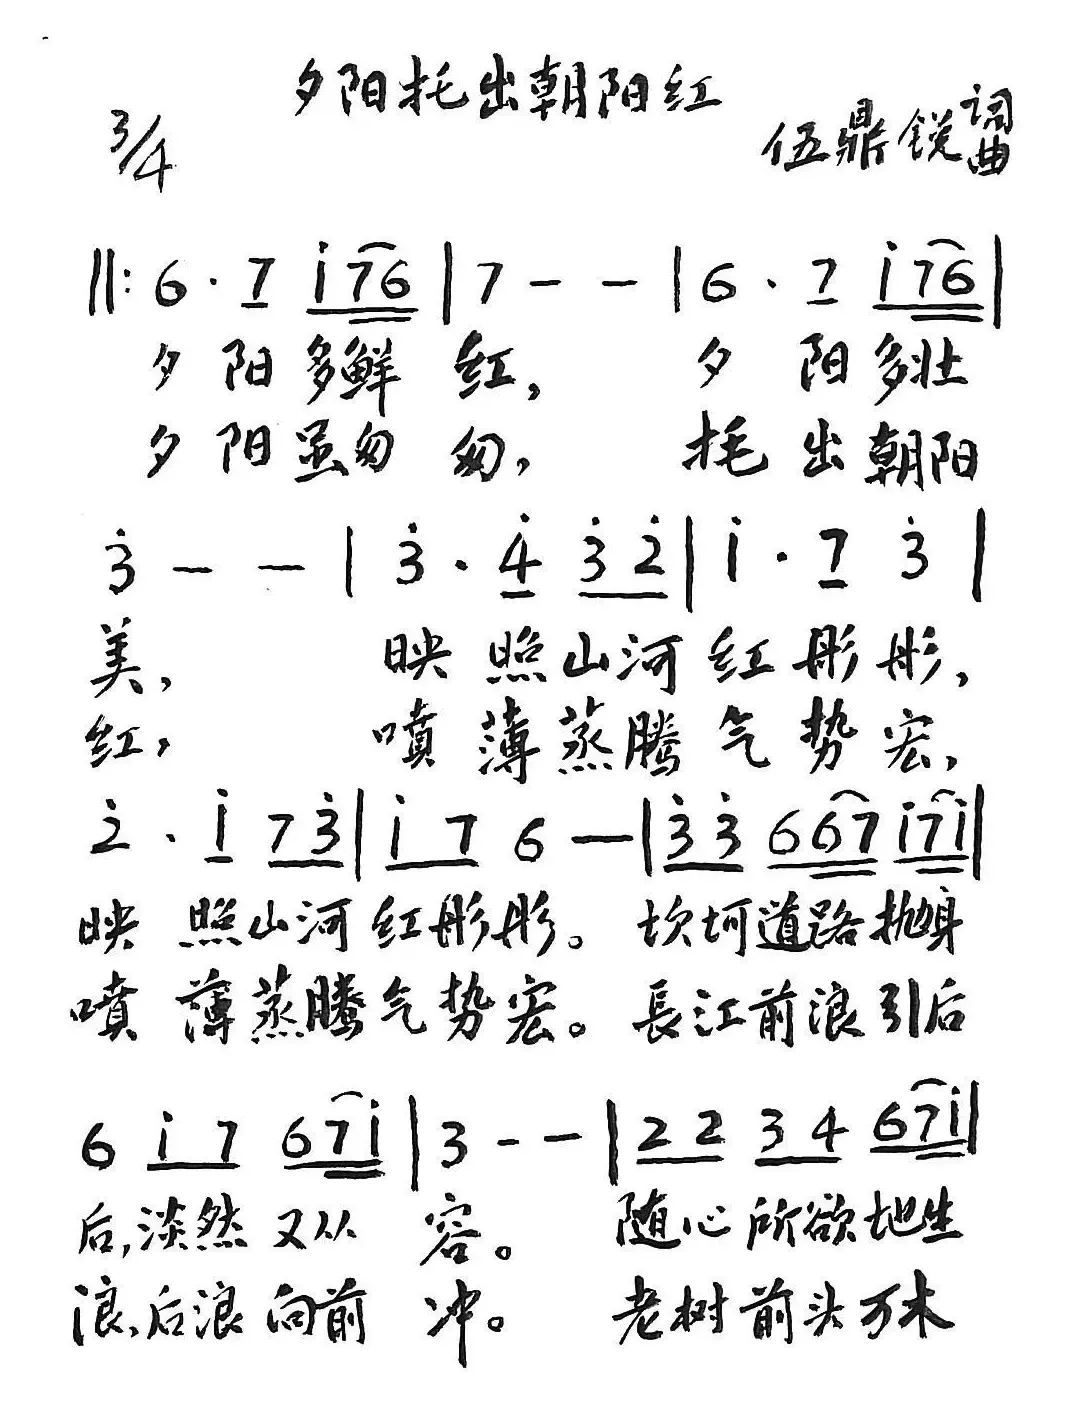 夕阳托出朝阳红
3/4
伍鼎锐 词曲
‖: 6 · 7 i 7 6 | 7 - - | 6 · 7 i 7 6 |
夕阳多鲜红, 夕阳多壮
夕阳虽匆匆, 托出朝阳
3̇ - - | 3̇ · 4̇ 3̇ 2̇ | i · 7 3̇ |
美, 映照山河红彤彤,
红, 喷薄蒸腾气势宏,
2̇ · i 7 3̇ | i 7 6 - | 3̇ 3̇ 6 6 7 i 7 i |
映照山河红彤彤。坎坷道路抛身
喷薄蒸腾气势宏。長江前浪引后
6 i 7 6 7 i | 3 - - | 2 2 3 4 6 7 i |
后,淡然又从容。随心所欲地生
浪,后浪向前冲。老树前头万木